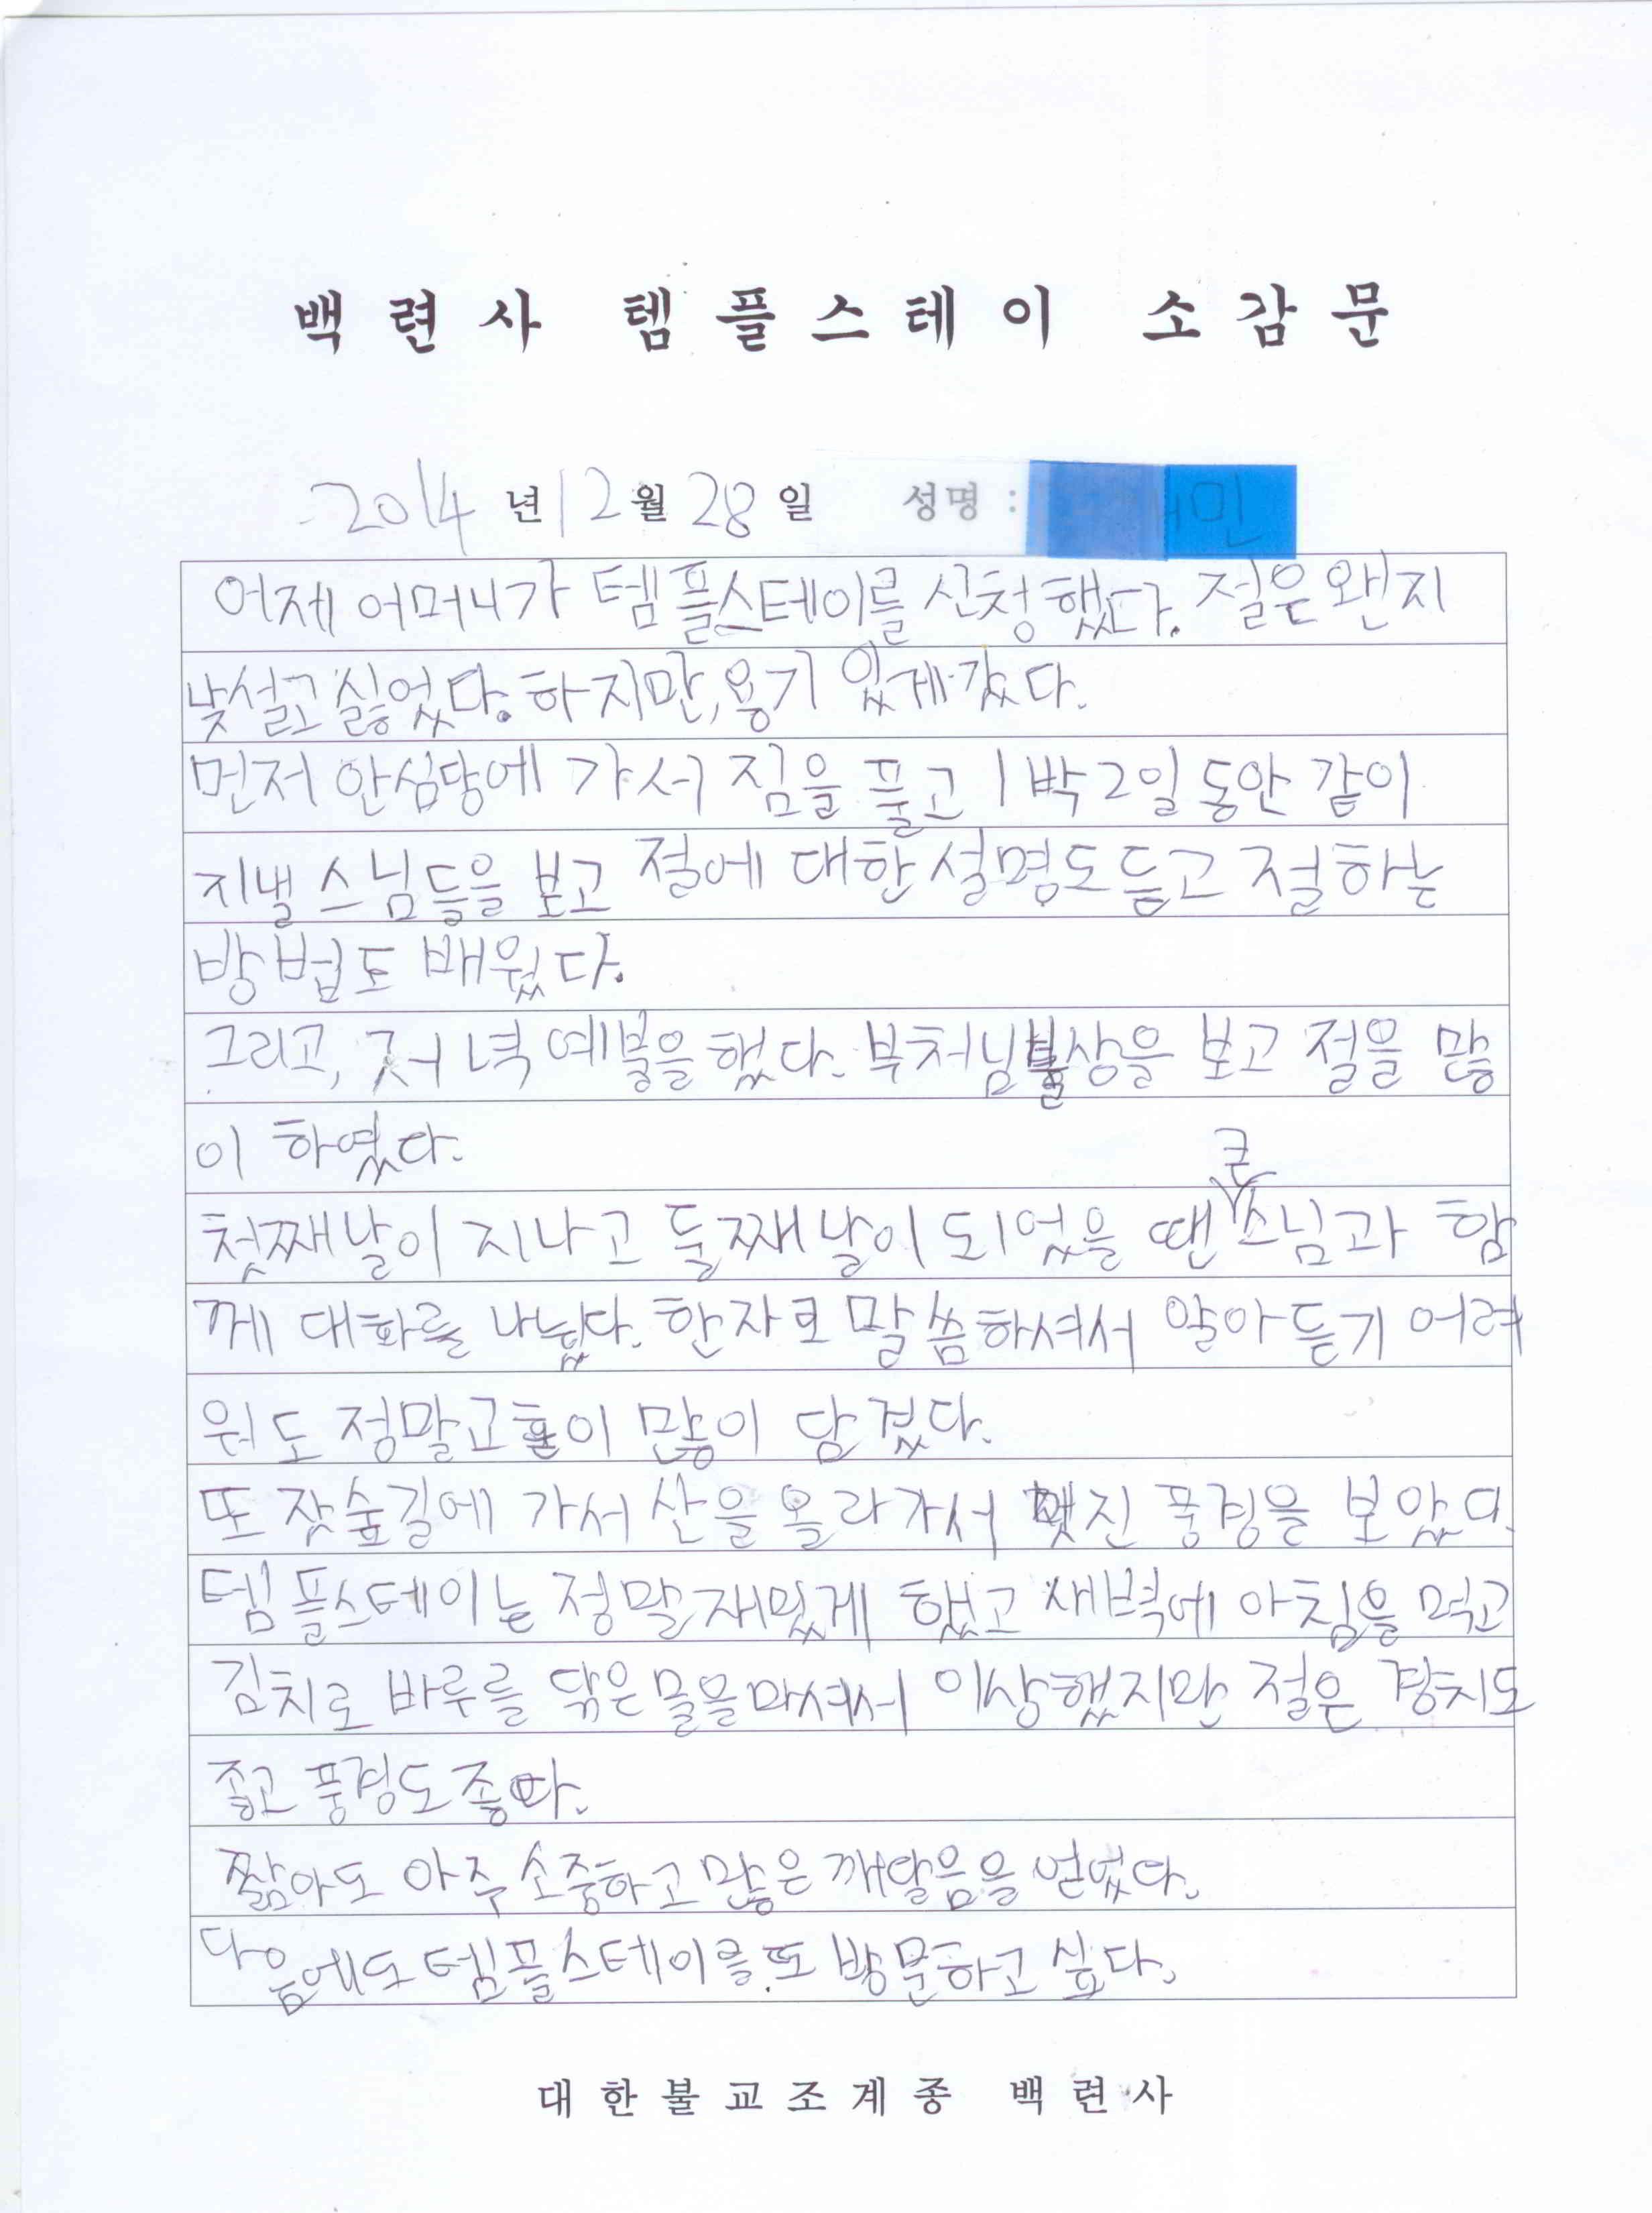 백련사 템플스테이 소감문
2014년 12월 28일 성명 :
어제 어머니가 템플스테이를 신청했다. 절은 왠지
낯설고 싫었다. 하지만, 용기 있게 갔다.
먼저 안심당에 가서 짐을 풀고 1박 2일 동안 같이
지낼 스님들을 보고 절에 대한 설명도 듣고 절하는
방법도 배웠다.
그리고, 저녁 예불을 했다. 부처님불상을 보고 절을 많
이 하였다.
첫째날이 지나고 둘째날이 되었을 땐 큰스님과 함
께 대화를 나눴다. 한자로 말씀하셔서 알아듣기 어려
워도 정말 교훈이 많이 담겼다.
또 잣숲길에 가서 산을 올라가서 멋진 풍경을 보았다.
템플스테이는 정말 재밌게 했고 새벽에 아침을 먹고
김치로 바루를 닦은 물을 마셔서 이상했지만 절은 경치도
좋고 풍경도 좋다.
짧아도 아주 소중하고 많은 깨달음을 얻었다.
다음에도 템플스테이를 또 방문하고 싶다.
대한불교조계종 백련사